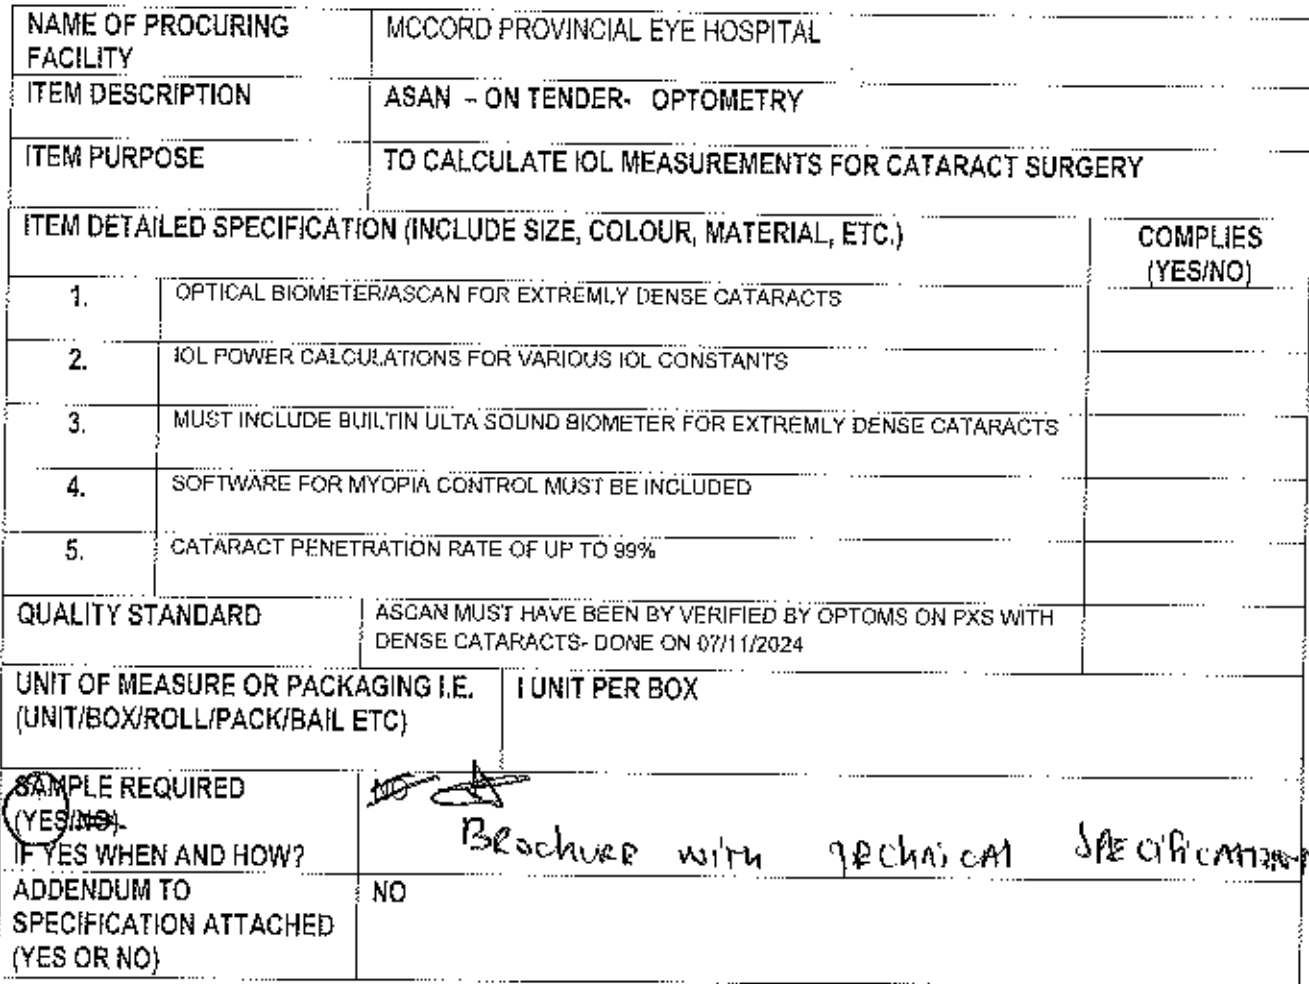 NAME OF PROCURING
FACILITY
MCCORD PROVINCIAL EYE HOSPITAL
ITEM DESCRIPTION
ASAN - ON TENDER- OPTOMETRY
ITEM PURPOSE
TO CALCULATE IOL MEASUREMENTS FOR CATARACT SURGERY
ITEM DETAILED SPECIFICATION (INCLUDE SIZE, COLOUR, MATERIAL, ETC.)
COMPLIES
(YES/NO)
1. OPTICAL BIOMETER/ASCAN FOR EXTREMLY DENSE CATARACTS
2. IOL POWER CALCULATIONS FOR VARIOUS IOL CONSTANTS
3. MUST INCLUDE BUILTIN ULTA SOUND BIOMETER FOR EXTREMLY DENSE CATARACTS
4. SOFTWARE FOR MYOPIA CONTROL MUST BE INCLUDED
5. CATARACT PENETRATION RATE OF UP TO 99%
QUALITY STANDARD
ASCAN MUST HAVE BEEN BY VERIFIED BY OPTOMS ON PXS WITH
DENSE CATARACTS- DONE ON 07/11/2024
UNIT OF MEASURE OR PACKAGING I.E.
(UNIT/BOX/ROLL/PACK/BAIL ETC)
I UNIT PER BOX
SAMPLE REQUIRED
(YES/NO).
IF YES WHEN AND HOW?
NO
Brochure with technical specification
ADDENDUM TO
SPECIFICATION ATTACHED
(YES OR NO)
NO